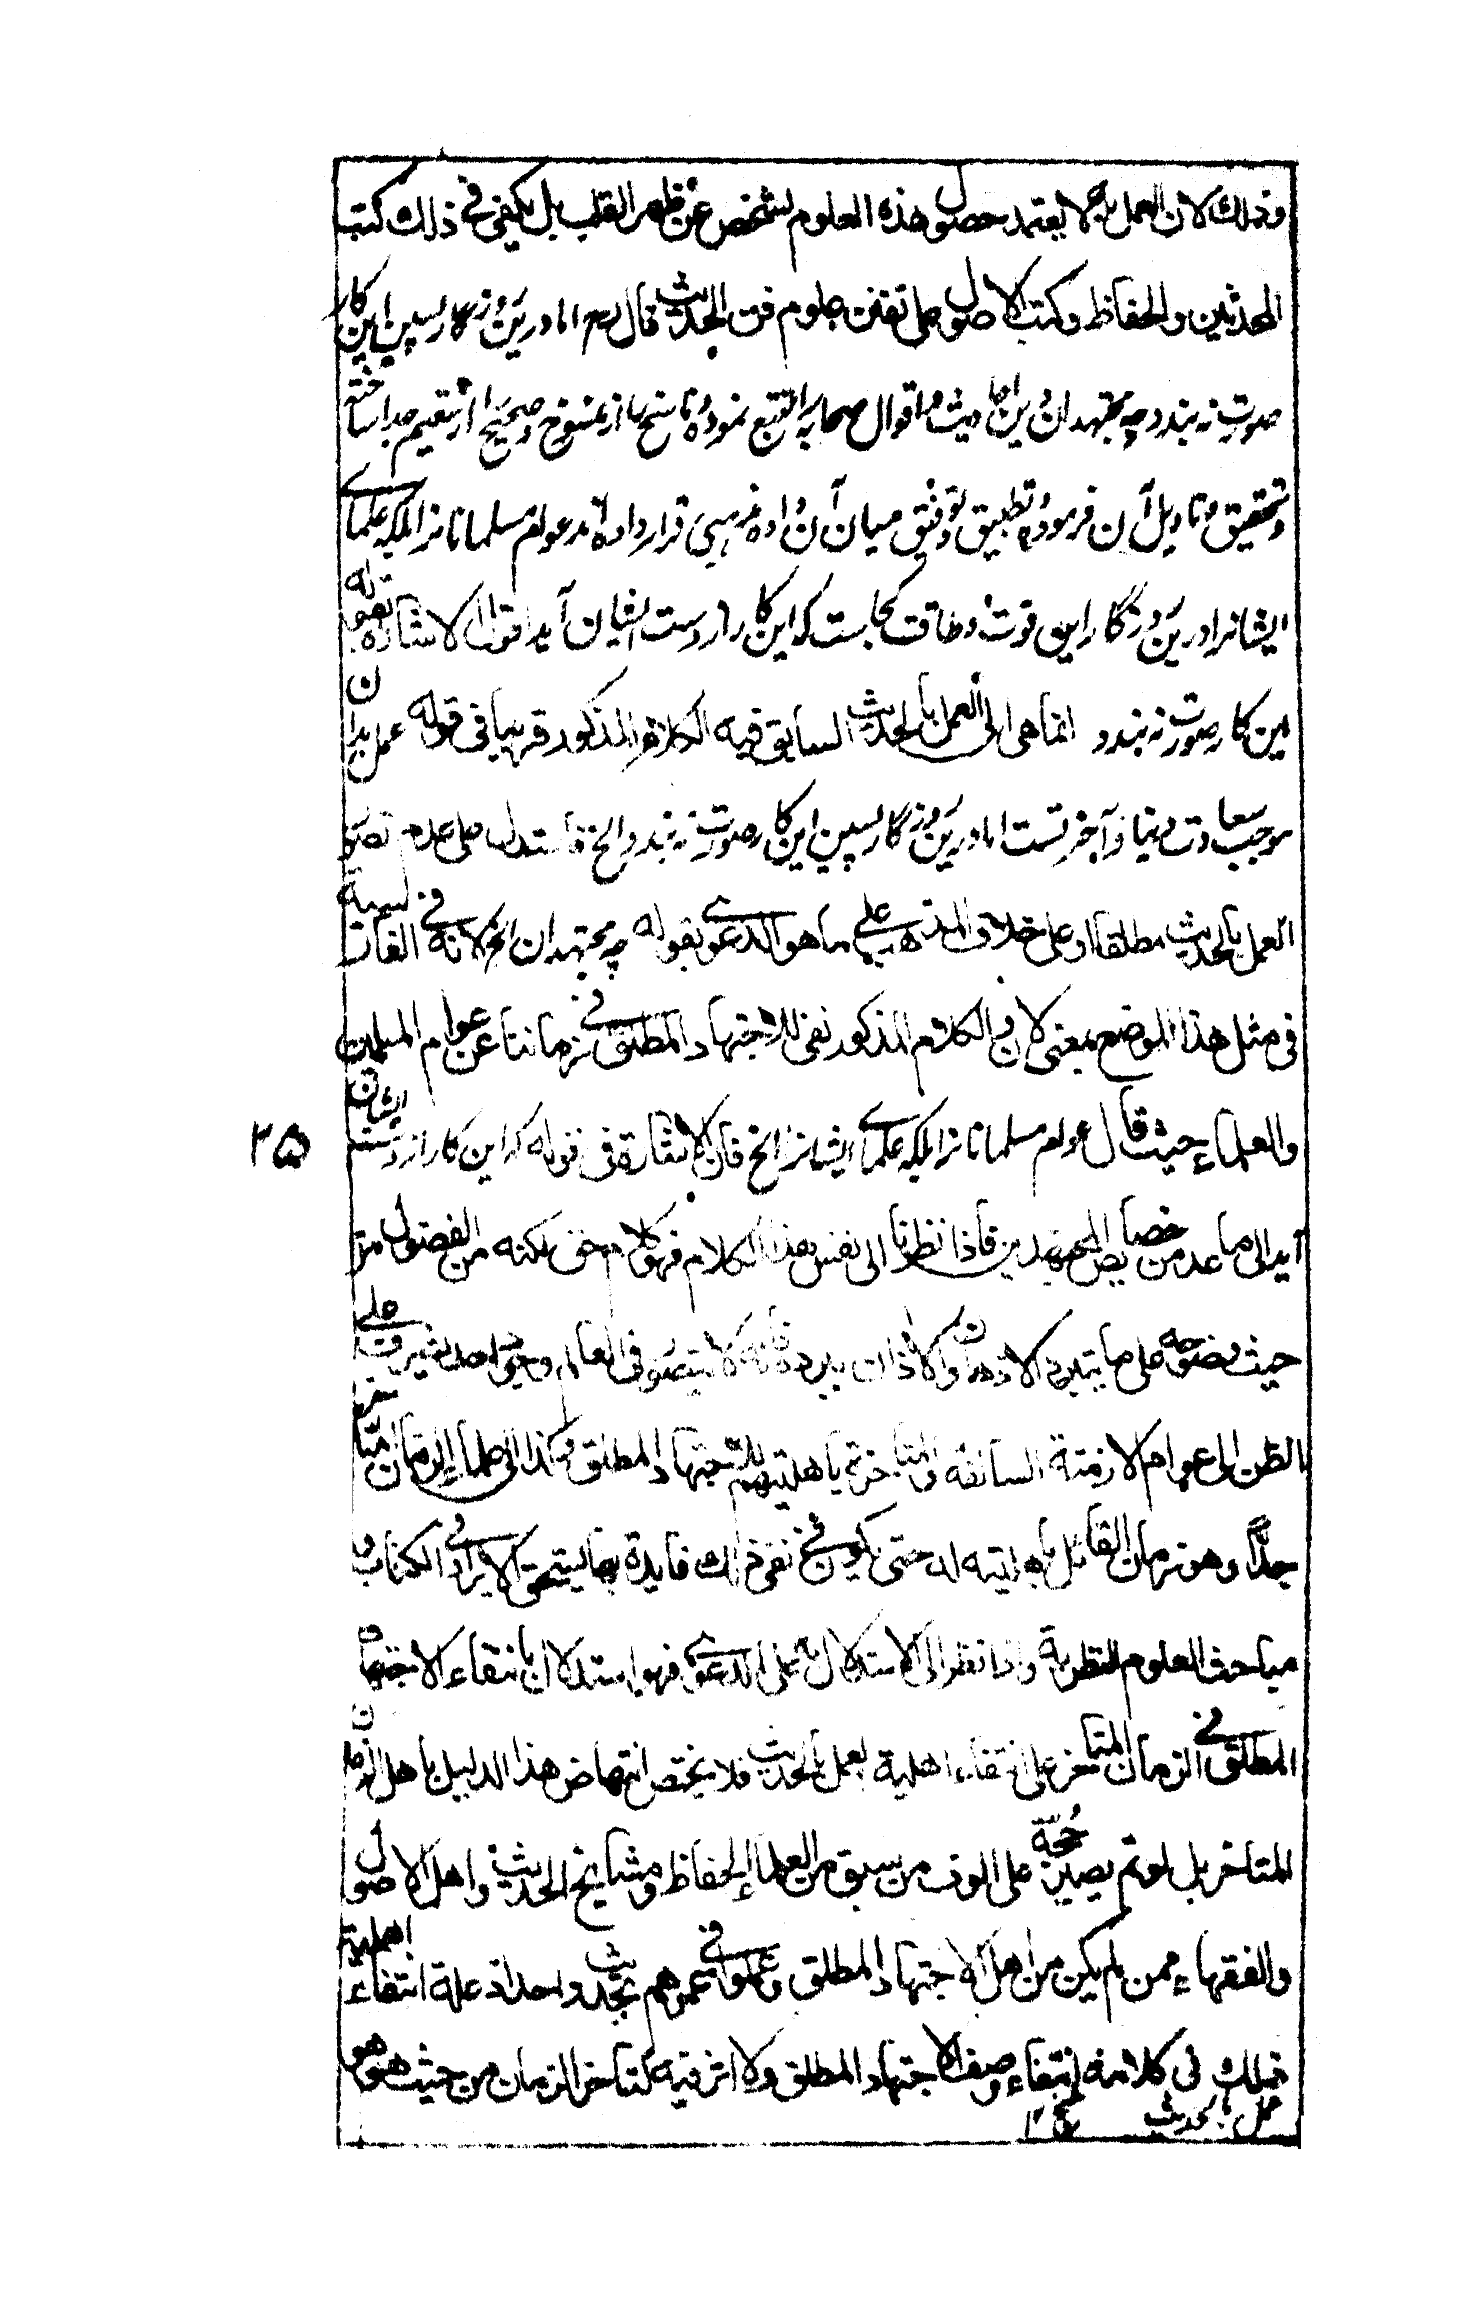 وذلك لان العمل به لا يعتمد حصول هذه العلوم لشخص عن ظهر القلب بل يكفى فى ذلك كتب
المحدثين والحفاظ وكتب الاصول على تفنن علوم فن الحديث قال رح اما درين روزگار پسين اين كار
صورت نه بندد چه مجتهدان دين احاديث واقوال صحابه را تتبع نموده ناسخ را از منسوخ وصحيح را از سقيم جدا ساخته
وتحقيق وتاويل آن فرموده وتطبيق وتوفيق ميان آن داده مذهبى قرار داده اند عوام مسلمانان را بلكه علماى
ايشان را درين روزگار اين قوت وطاقت كجاست كه اين كار از دست ايشان آيد اقول الاشارة بقوله
اين كار صورت نه بندد انما هى الى العمل بالحديث السابق فيه الكلام المذكور قريبا فى قوله عمل بدان
موجب سعادت دنيا وآخرتست اما درين روزگار پسين اين كار صورت نه بندد الخ فاستدل على عدم تصور
العمل بالحديث مطلقا او على خلاف المذهب على ما هو الدعوى بقوله چه مجتهدان الخ لانه فى الفارسية
فى مثل هذا الموضع بمعنى لان والكلام المذكور نفى للاجتهاد المطلق فى زماننا عن عوام المسلمين
والعلماء حيث قال عوام مسلمانان را بلكه علماى ايشان را الخ فان الاشارة فى قوله كه اين كار از دست ايشان
۲۵
آيد الى ما عد من خصايص المجتهدين فاذا نظرنا الى نفس هذا الكلام فهو كلام حق لكنه من الفضول من
حيث وضوحه على ما يتبدر به الاذهان والاذان فانه لا يتصور فى العالم وجود احد
بالظن الى عوام الازمنة السابقة والمتاخرة باهليتهم للاجتهاد المطلق وكذا الى علماء الزمان متاخر
جدا وهو زمان القائل باهليته له حتى يكون فى نفى ذلك فايدة بها يستحق الايراد فى الكتاب و
مباحث العلوم النظرية واذا نظر الى الاستدلال به على الدعوى فهو استدلال بانتفاء الاجتهاد
المطلق فى الزمان المتاخر على انتفاء اهلية العمل بالحديث فلا يختص انتهاض هذا الدليل باهل الزمان
المتاخر بل لو تم يصير حجة على الوف من سبق من العلماء الحفاظ ومشايخ الحديث واهل الاصول
والفقهاء ممن لم يكن من اهل الاجتهاد المطلق فى عمرهم بحديث واحد اذ علة انتفاء اهلية
ذلك فى كلامه انتفاء وصف الاجتهاد المطلق ولا اثر فيه لتاخر الزمان من حيث هو هو
عمل بالحديث ۱۲